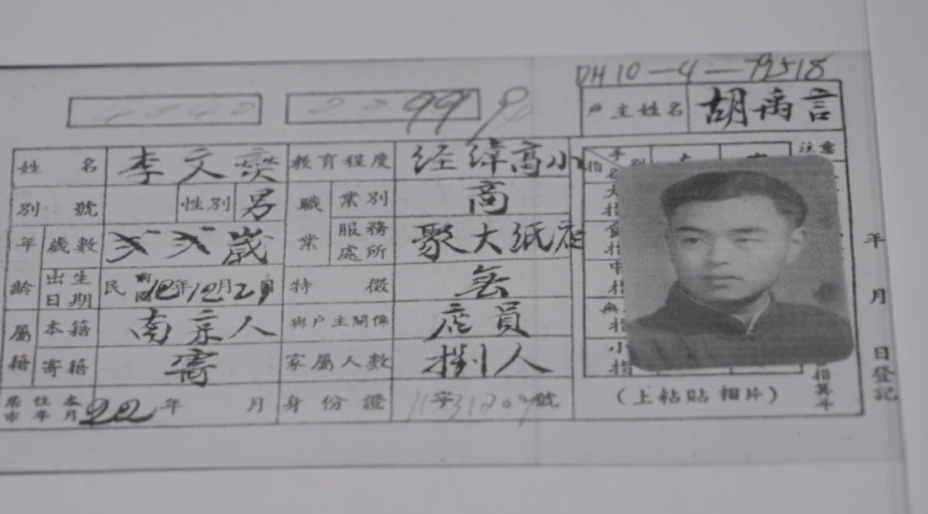 DH10-4-79518
99
戶主姓名 胡禹言
姓名 李文燮 教育程度 经緯高小
別號 性別 男 職業 業別 商
年齡 歲數 歲 服務處所 聚大紙店
出生日期 民 年12月2日 特徵 無
屬籍 本籍 南京人 與戶主關係 店員
寄籍 家屬人數 捌人
居住本市年月 22年 月 身份證 字 號
手別
指名
左
右
注意
大指
食指
中指
無 指
小指
指箕斗
(上粘貼相片)
年 月 日登記